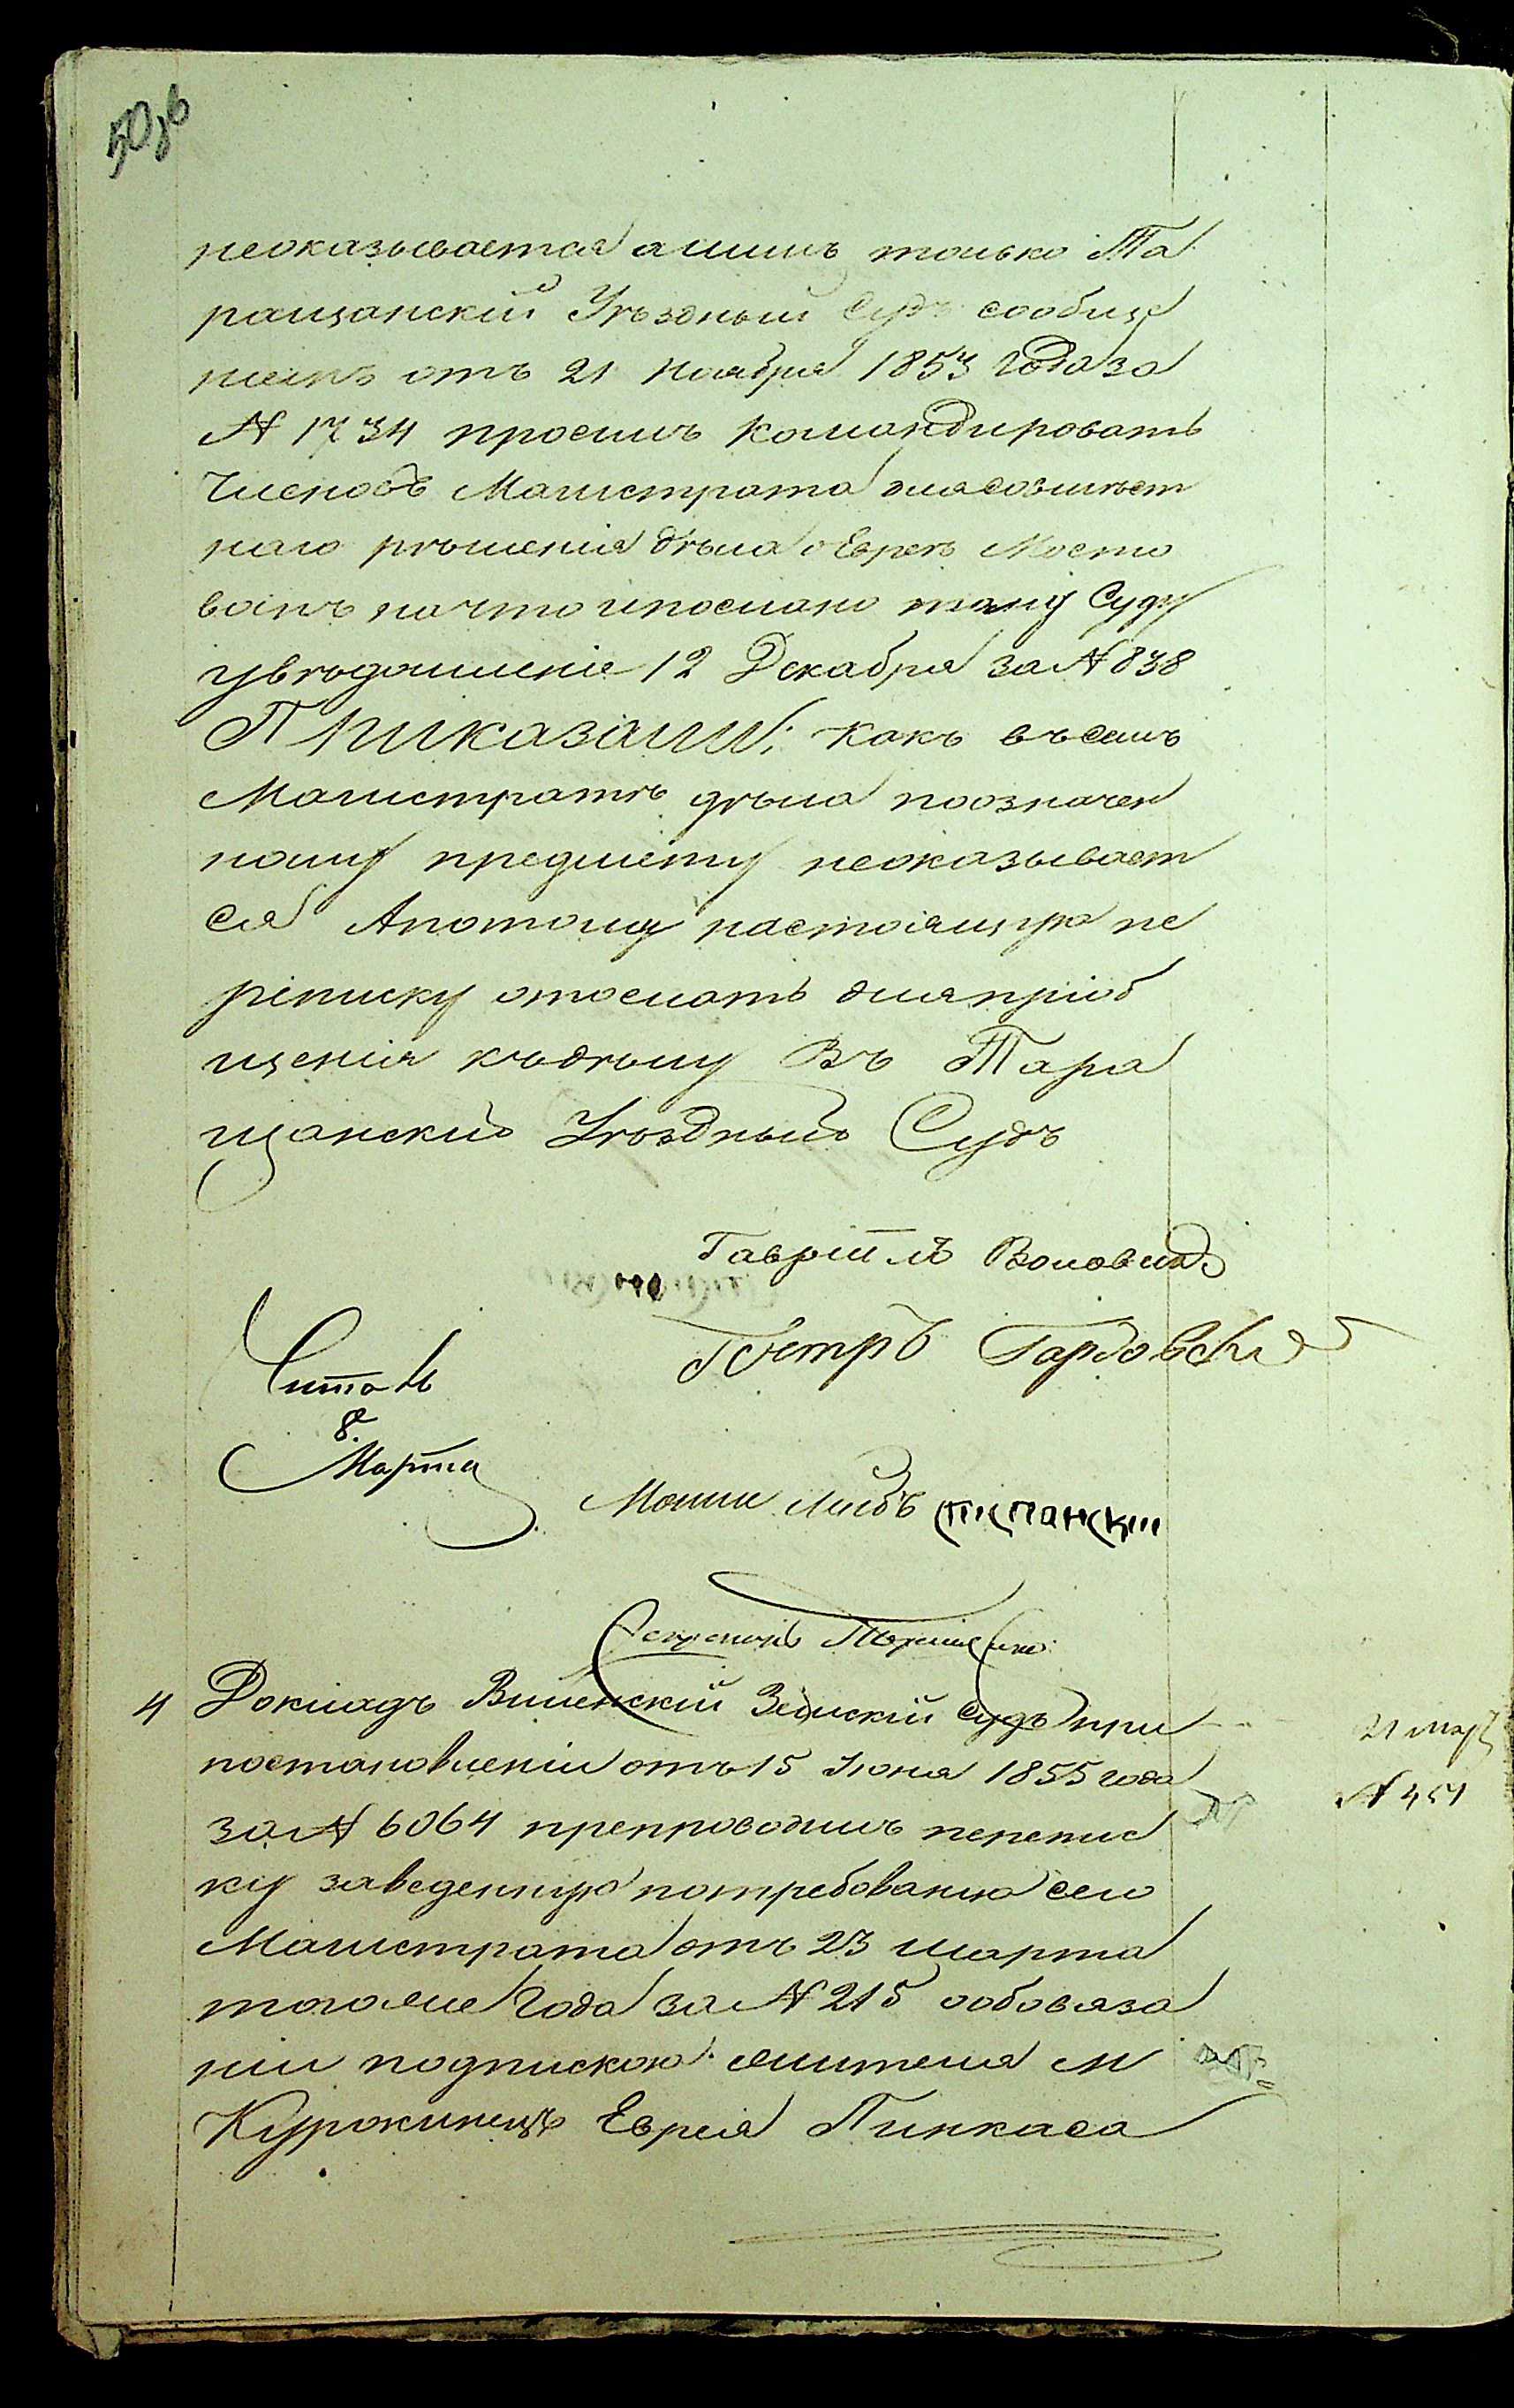 50об
неоказывается алишь только Та
ращанскій Уѣздный Судъ сообще
ніемъ отъ 21 Ноября 1853 года за
№ 1734 просилъ командировать
Членовъ Магистрата длясовмѣст
наго рѣшенія дѣла оЕвреѣ Мосто
вомъ начто ипослано тому Суду
увѣдомленіе 12 Декабря за № 838
ПРИКАЗАЛИ: какъ въсемъ
Магистратѣ дѣла поозначен
ному предмету неоказывает
ся Апотому настоящую пе
реписку отослать дляпріоб
щенія къдѣлу Въ Тара
щанскій Уѣздный Судъ
Гавріилъ Воловикъ
Петръ Гарбовскій
Читалъ
8.
Марта
Мошко Лейбъ
Секретарь
4 Докладъ Виленскій Земскій Судъ при
постановленіи отъ 15 Іюня 1855 года
за № 6064 препроводилъ перепис
ку заведенную потребованію сего
Магистрата отъ 23 марта
тогоже года за № 215 ообовяза
ніи подпискою жителя м
Курокинецъ Еврея Пинкаса
21 мар
№ 451